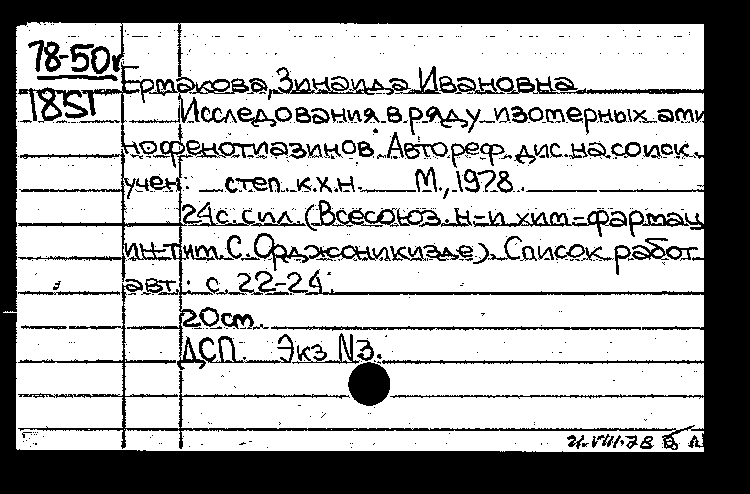 78-50г
1851
Ермакова, Зинаида Ивановна
Исследования в ряду изотерных ами
нофенотиазинов. Автореф. дис. на соиск.
учен. степ. к.х.н. М., 1978.
24с. с ил. (Всесоюз. н=и хим=фармац
ин-т им. С. Орджоникидзе). Список работ
авт.: с. 22-24.
20см.
ДСП. Экз N3.
21.VIII.78